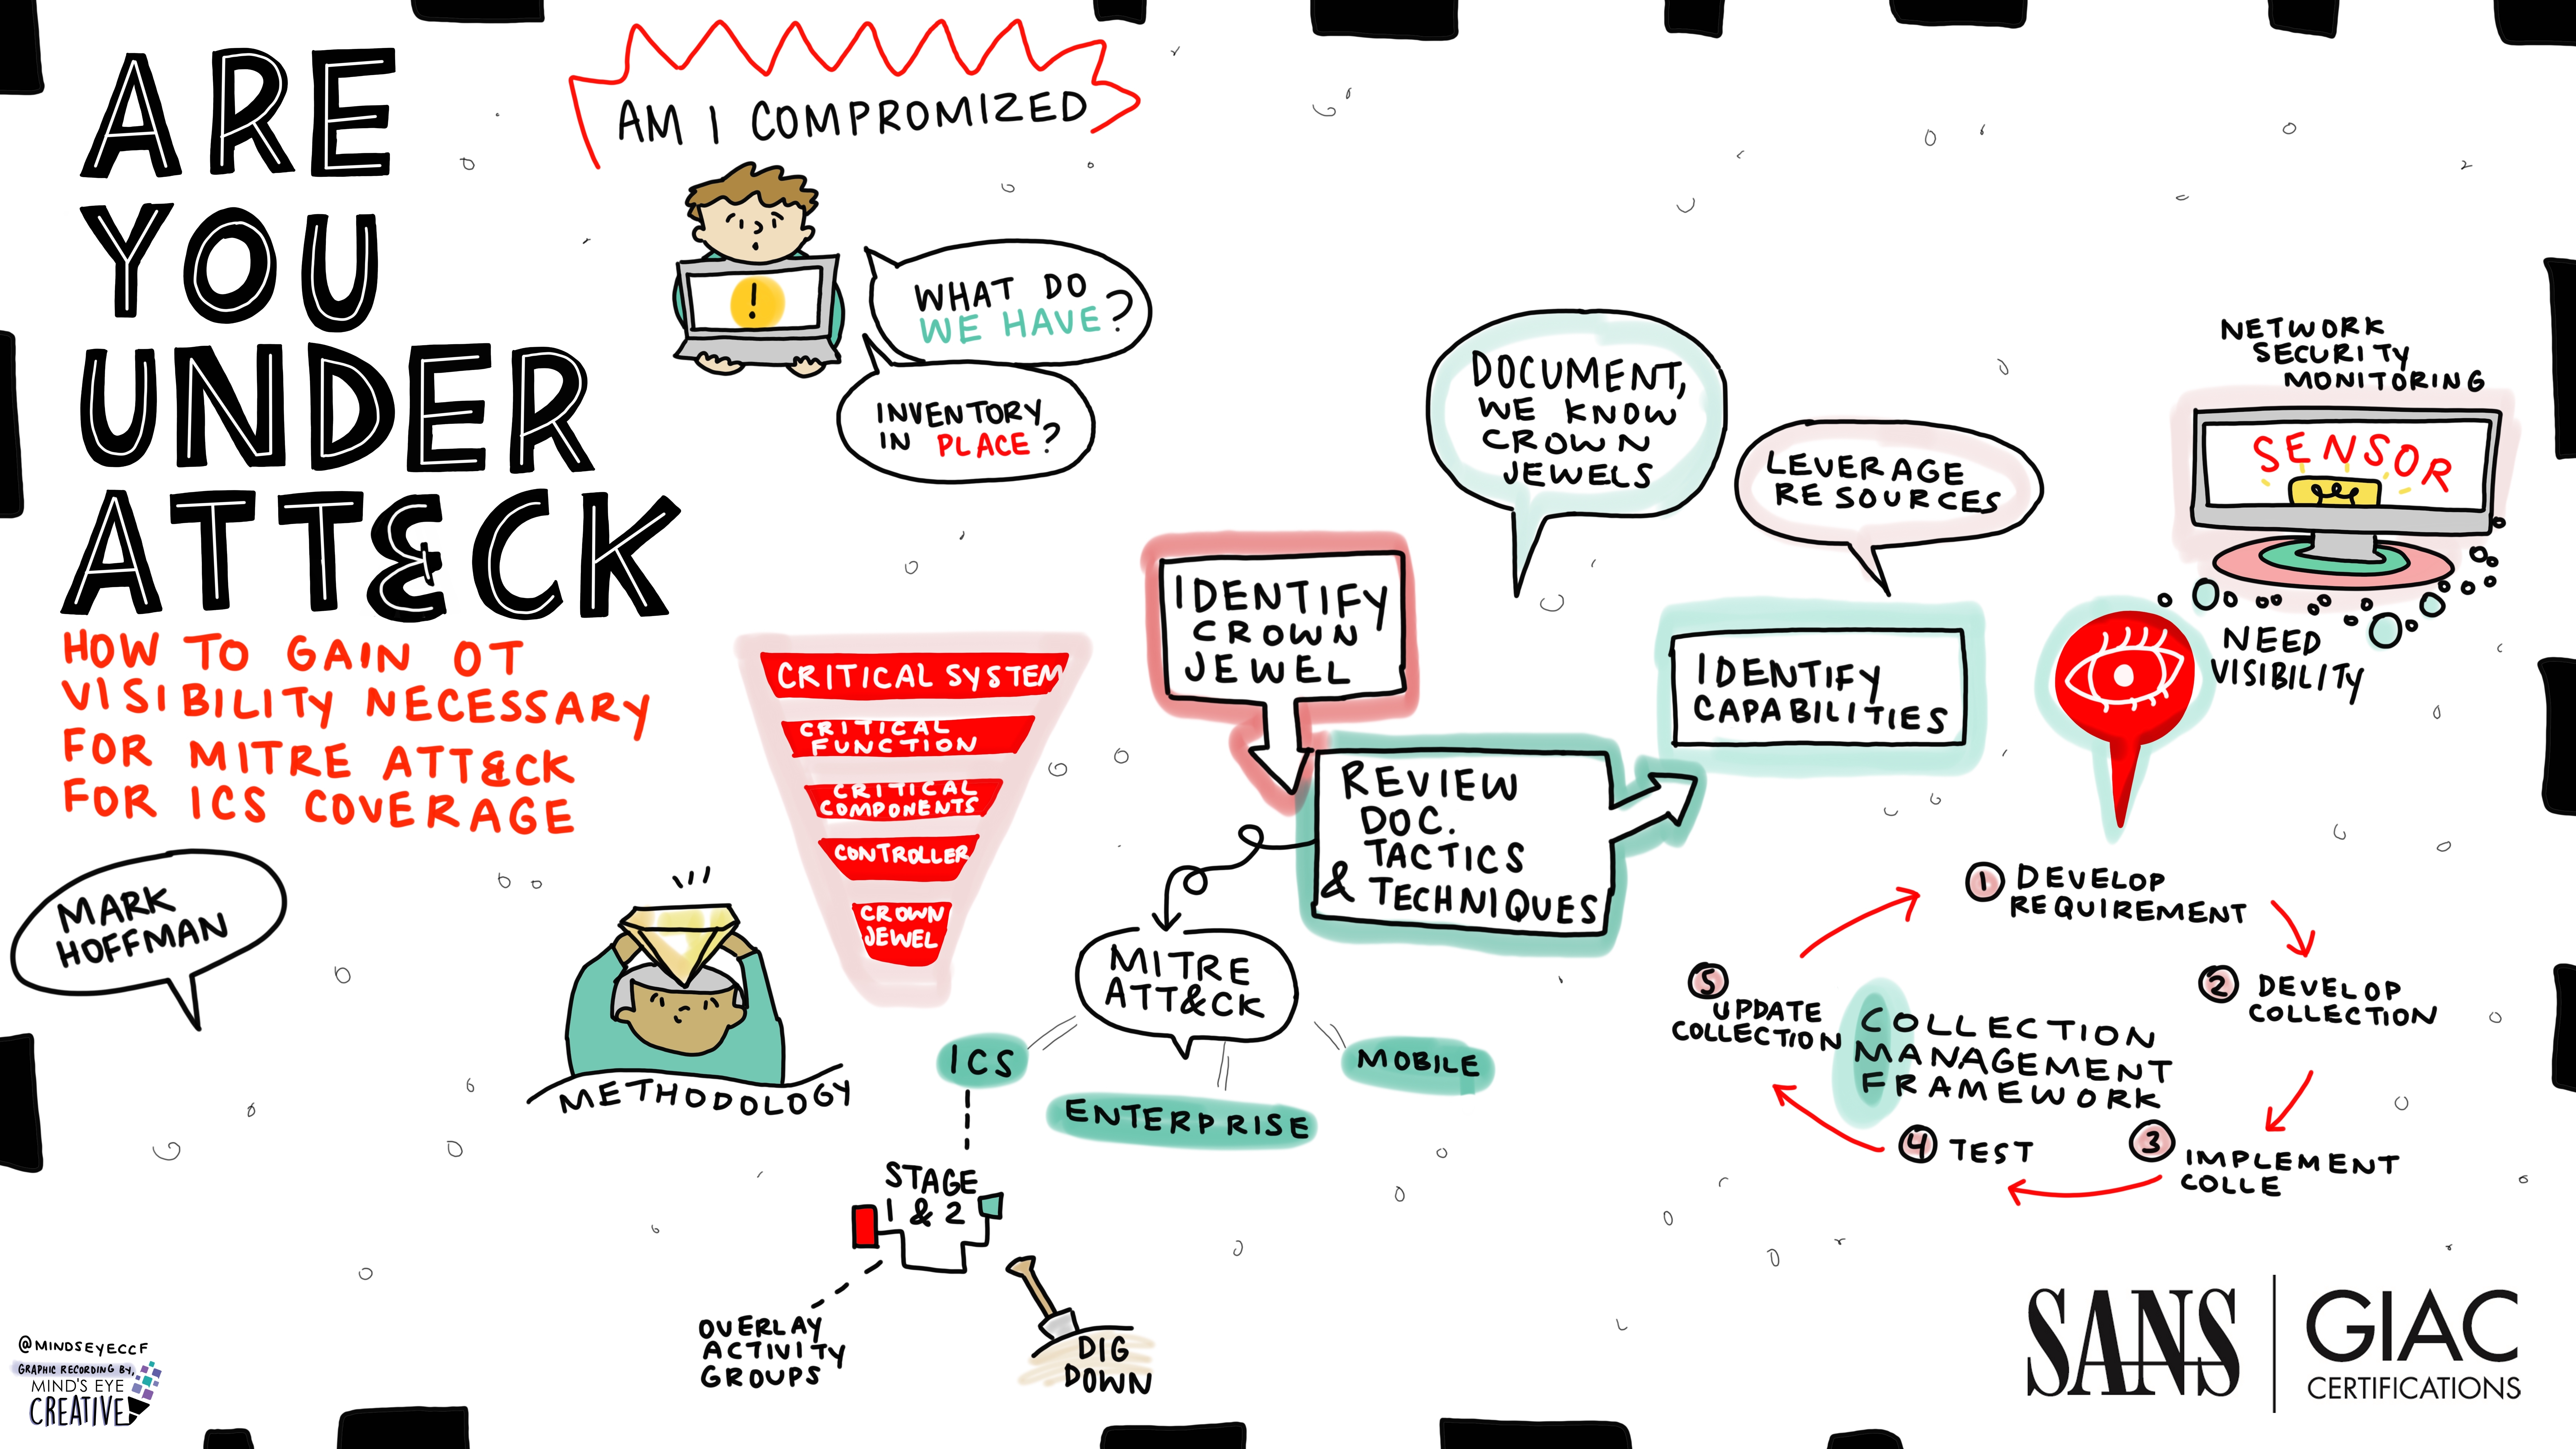 ARE
YOU
UNDER
ATT&CK
HOW TO GAIN OT
VISIBILITY NECESSARY
FOR MITRE ATT&CK
FOR ICS COVERAGE
MARK
HOFFMAN
AM I COMPROMIZED
!
WHAT DO
WE HAVE?
INVENTORY
IN PLACE?
METHODOLOGY
CRITICAL SYSTEM
CRITICAL
FUNCTION
CRITICAL
COMPONENTS
CONTROLLER
CROWN
JEWEL
IDENTIFY
CROWN
JEWEL
REVIEW
DOC.
TACTICS
& TECHNIQUES
MITRE
ATT&CK
ICS
ENTERPRISE
MOBILE
STAGE
1 & 2
OVERLAY
ACTIVITY
GROUPS
DIG
DOWN
DOCUMENT,
WE KNOW
CROWN
JEWELS
LEVERAGE
RESOURCES
IDENTIFY
CAPABILITIES
NETWORK
SECURITY
MONITORING
SENSOR
NEED
VISIBILITY
1 DEVELOP
REQUIREMENT
2 DEVELOP
COLLECTION
3 IMPLEMENT
COLLE
4 TEST
5 UPDATE
COLLECTION
COLLECTION
MANAGEMENT
FRAMEWORK
@MINDSEYECCF
GRAPHIC RECORDING BY,
MIND'S EYE
CREATIVE
SANS
GIAC
CERTIFICATIONS